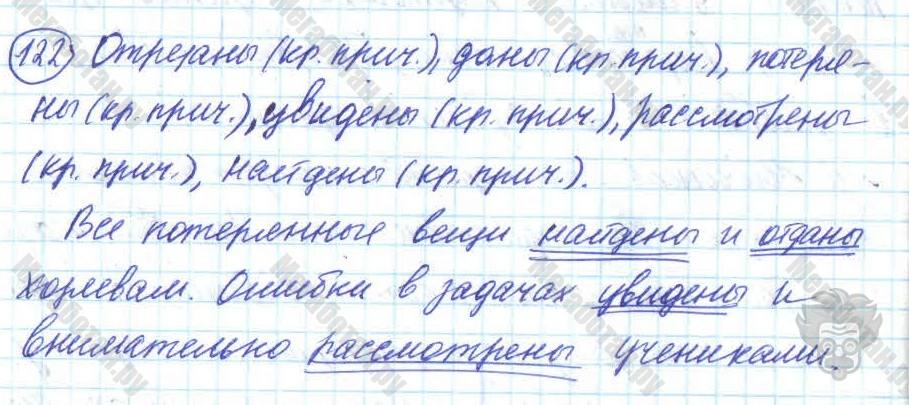 122) Отрезаны (кр. прич.), даны (кр. прич.), потеря-
ны (кр. прич.), увидены (кр. прич.), рассмотрены
(кр. прич.), найдены (кр. прич.).
Все потерянные вещи найдены и отданы
хозяевам. Ошибки в задачах увидены и
внимательно рассмотрены учениками.
Мегаботан.ру